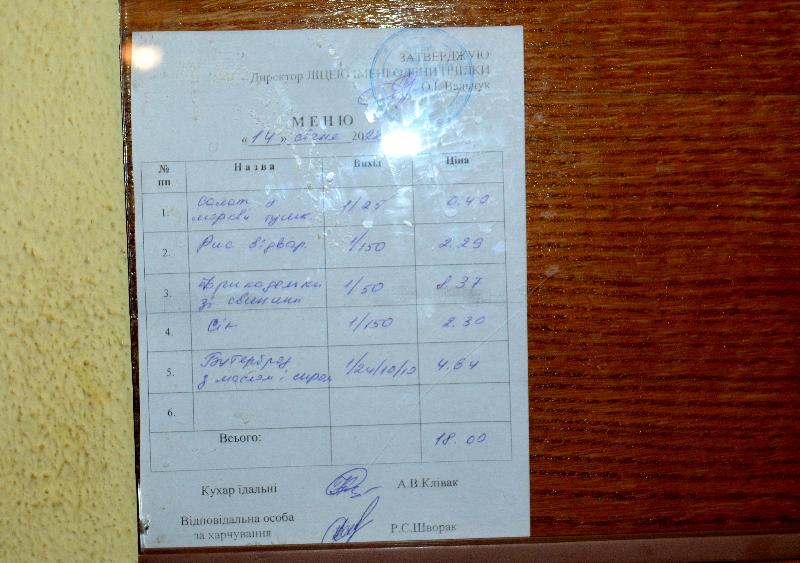 ЗАТВЕРДЖУЮ
Директор ЛІЦЕЮ ІМЕНІ ОЛЕНИ ПЧІЛКИ
О.І.
МЕНЮ
«14» січня 20
№ пп Назва Вихід Ціна
1. Салат з 1/25 0.40
моркви тушк.
2. Рис відвар. 1/150 2.29
3. Фрикадельки 1/50 8.37
зі свинини
4. Сік 1/150 2.30
5. Бутерброд 1/24/10/10 4.64
з маслом і сиром
6.
Всього: 18.00
Кухар їдальні А.В.Клівак
Відповідальна особа
за харчування Р.С.Шворак